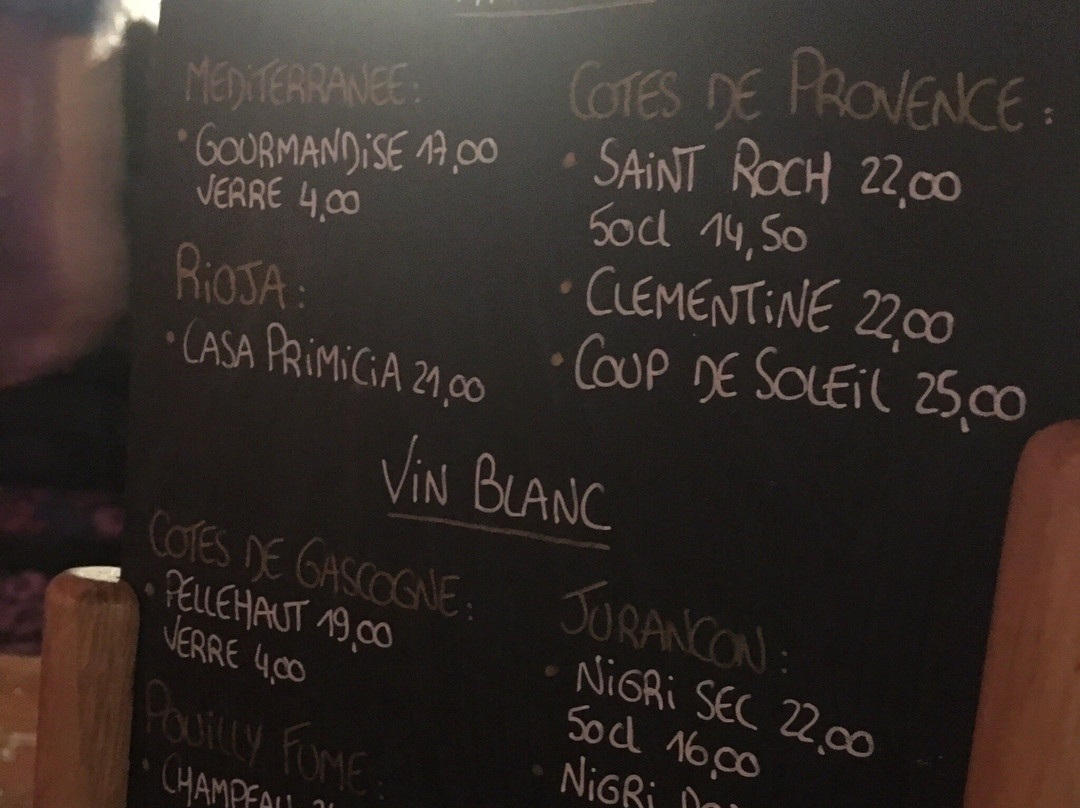 MEDITERRANEE:
• GOURMANDiSE 17,00
VERRE 4,00
RiOJA:
• CASA PRiMiCiA 21,00
COTES DE PROVENCE:
• SAiNT ROCH 22,00
50cl 14,50
• CLEMENTiNE 22,00
• COUP DE SOLEiL 25,00
ViN BLANC
COTES DE GASCOGNE:
• PELLEHAUT 19,00
VERRE 4,00
POUiLLY FUME:
• CHAMPEAU
JURANCON:
• NiGRi SEC 22,00
50cl 16,00
• NiGRi